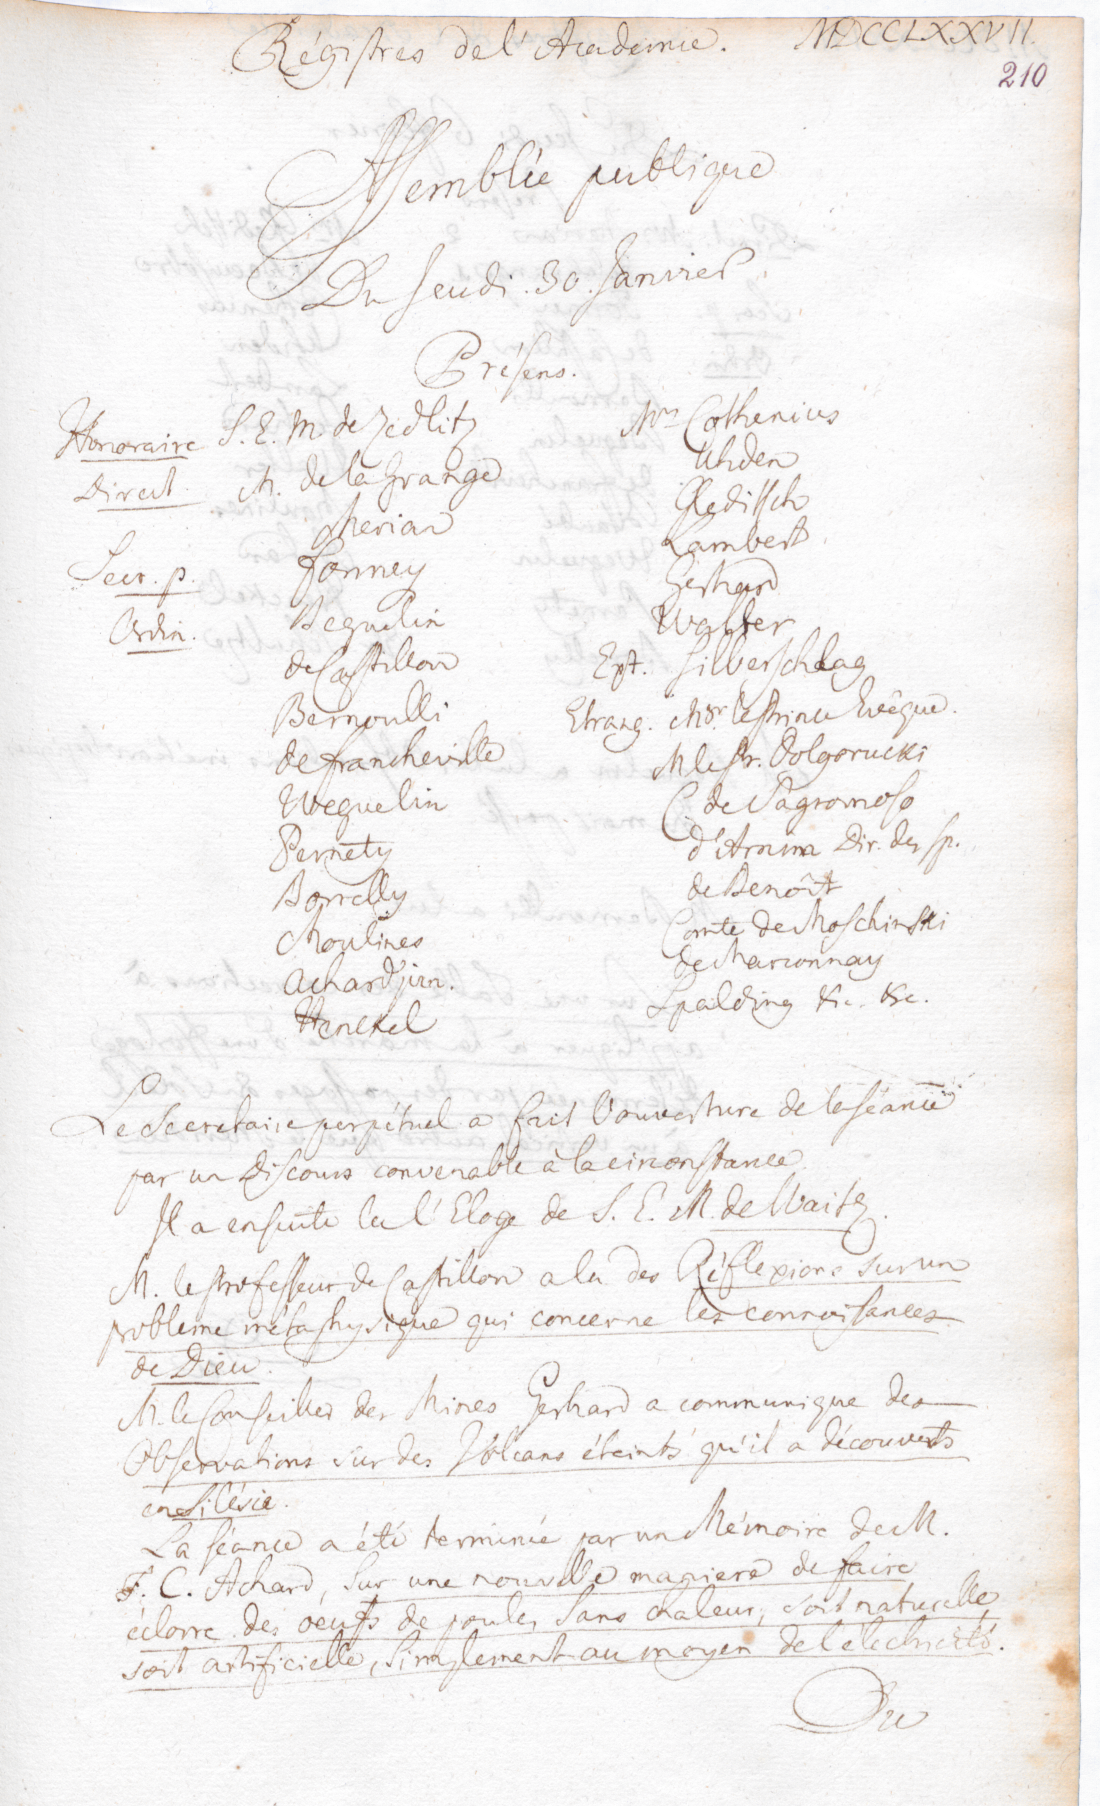 Régistres de l'Academie. MDCCLXXVII.
210
Assemblée publique
Du Jeudi . 30 . Janvier
Présens.
Honoraire S. E. M. de Zedlitz
Direct. M. de la Grange
Merian
Secr. p. Formey
Ordin. Beguelin
de Castillon
Bernoulli
de Francheville
Weguelin
Pernety
Borrelly
Moulines
Achard jun.
Henckel
Mrs Cothenius
Uhden
Gleditsch
Lambert
Gerhard
Walter
Ext. Silberschlag
Etrang. Mgr. le Prince Evêque.
M le Pr. Dolgorucki
C. de Sagromoso
d'Arnim Dir. des Sp.
de Benoît
Comte de Moschinski
de Marconnay
Spalding &c. &c.
Le Secretaire perpétuel a fait l'ouverture de la séance
par un Discours convenable à la circonstance.
Il a ensuite lu l'Eloge de S. E. M. de Waitz.
M. le Professeur de Castillon a lu des Réflexions sur un
probleme métaphysique qui concerne les connoissances
de Dieu.
M. le Conseiller des Mines Gerhard a communiqué des
Observations sur des Volcans éteints qu'il a découverts
en Silésie.
La séance a été terminée par un Mémoire de M.
F. C. Achard, sur une nouvelle maniere de faire
éclorre des oeufs de poules sans chaleur, soit naturelle,
soit artificielle, simplement au moyen de l'électricité.
Du